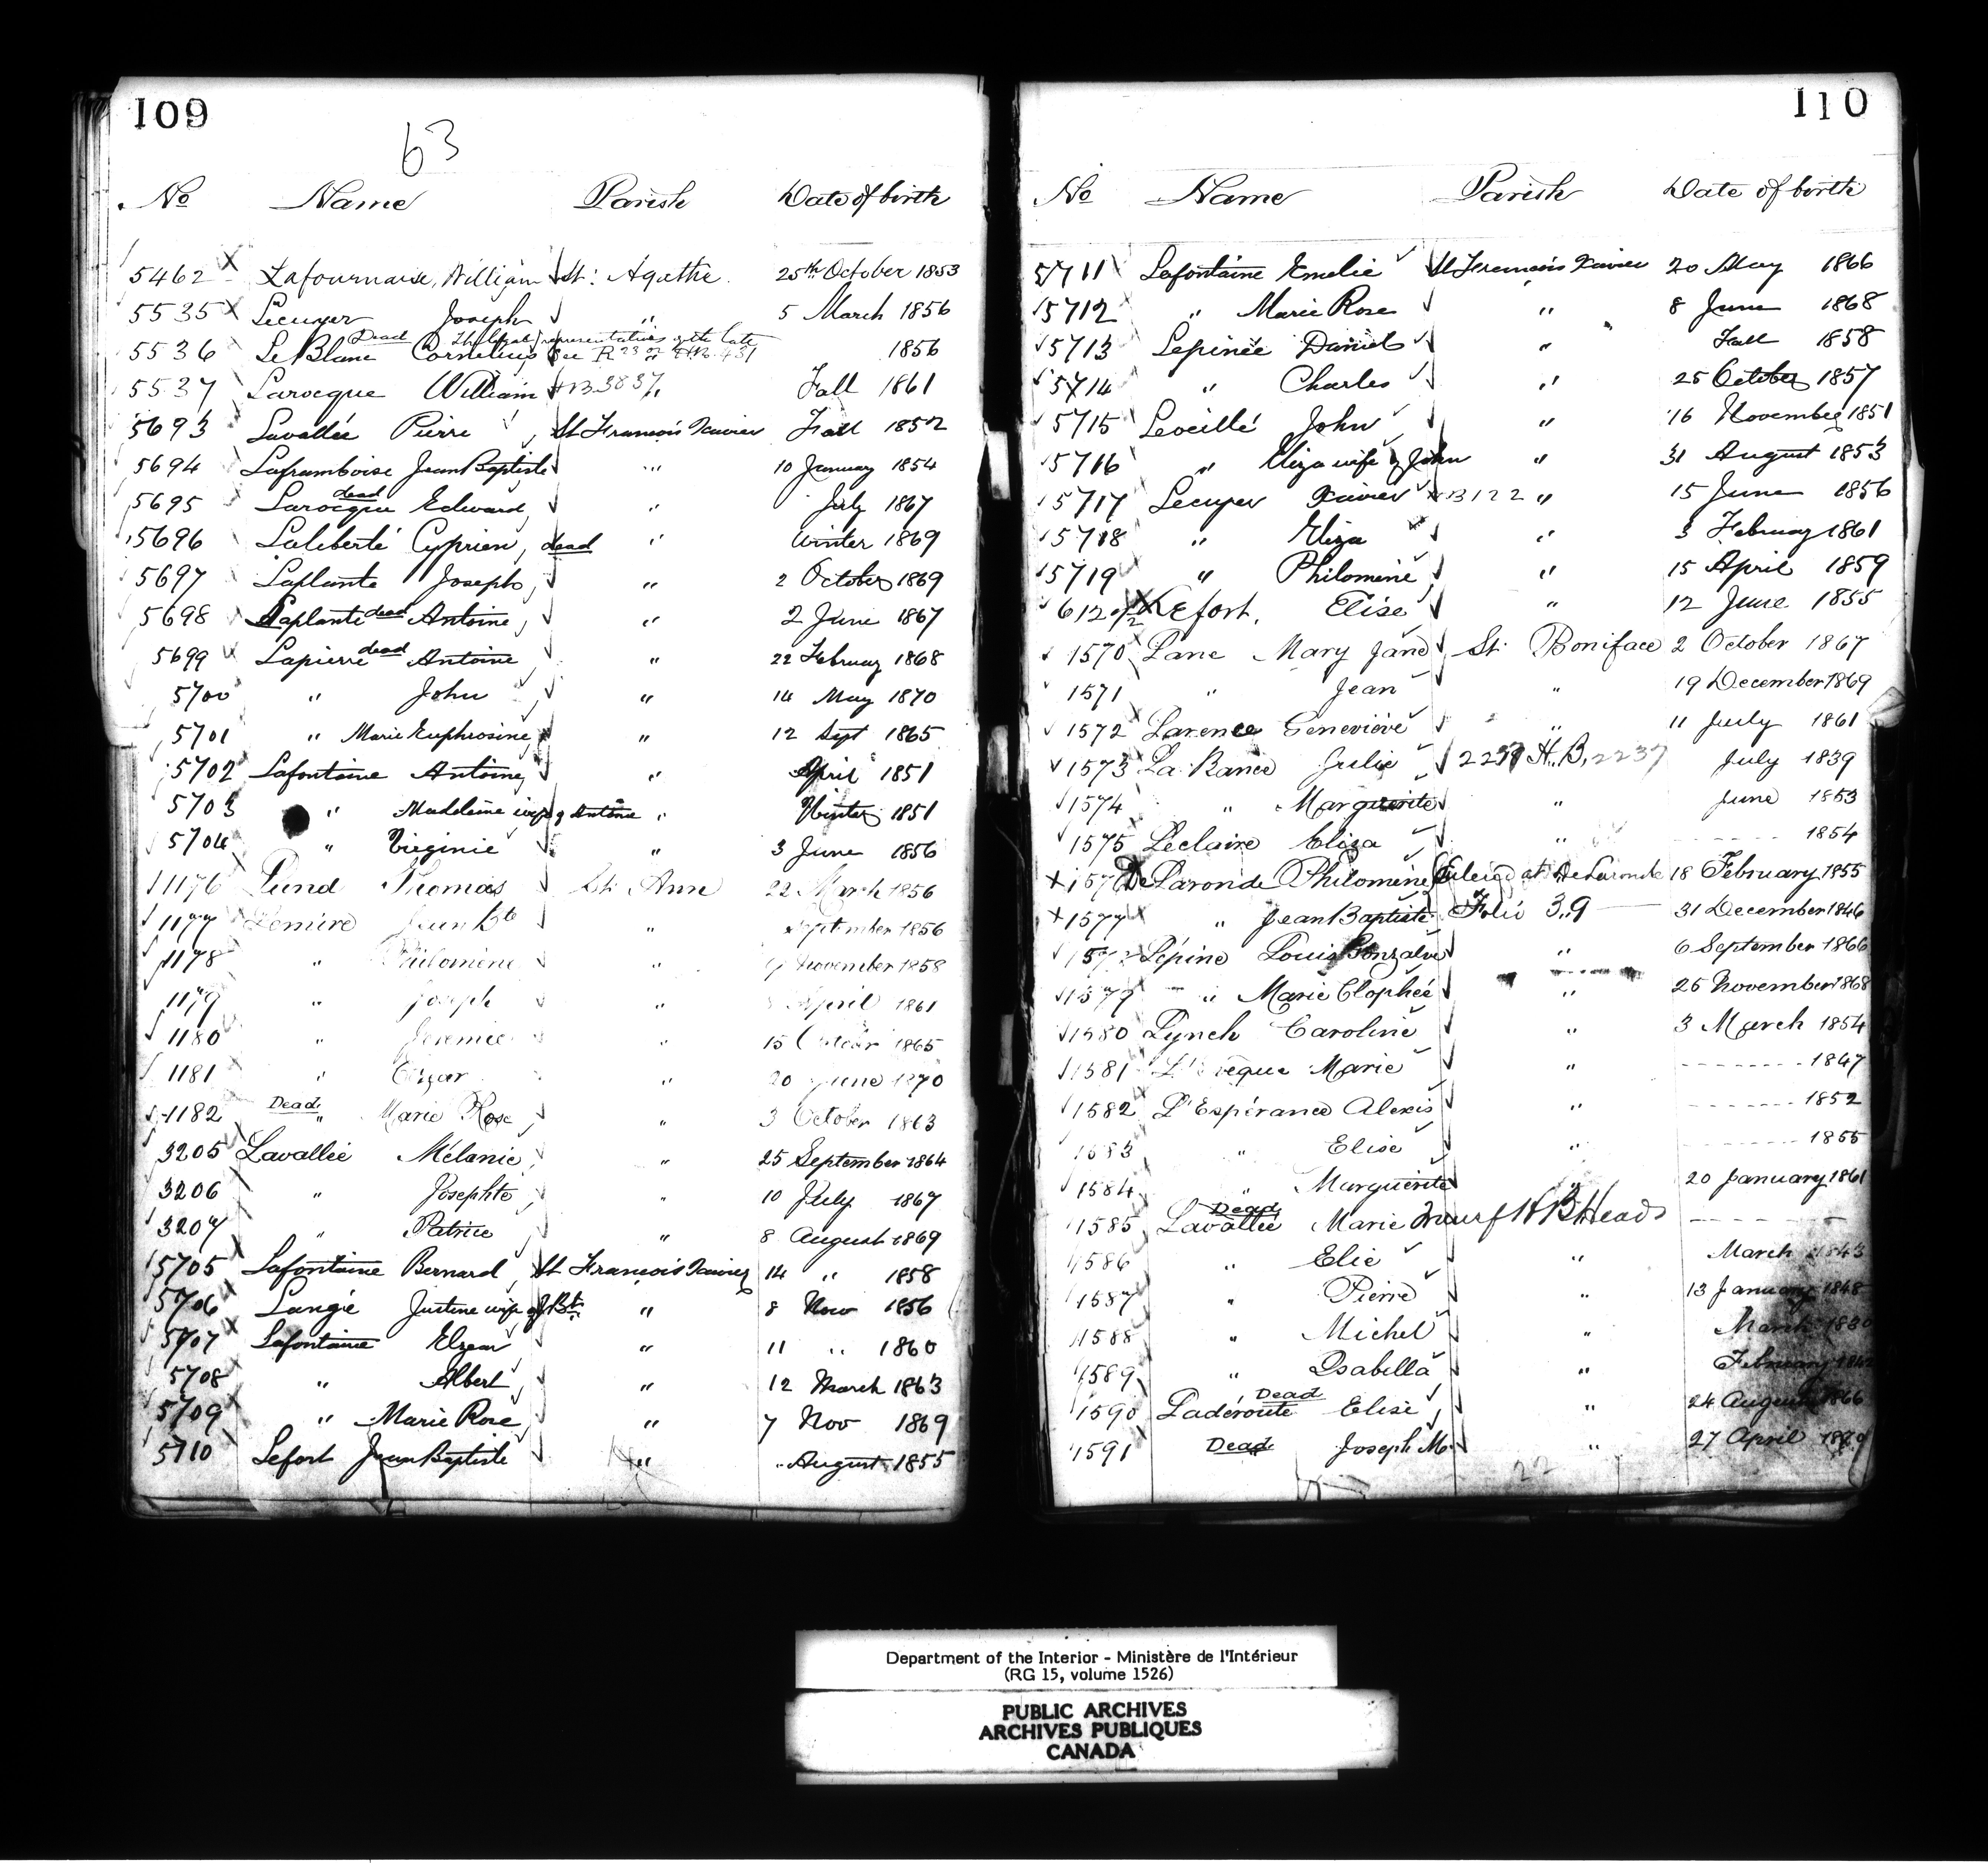 109
63
No Name Parish Date of birth
5462 Lafournaise, William St: Agathe 25th October 1853
5535 Lecuyer Joseph " 5 March 1856
Dead The legal representatives of the late
5536 LeBlanc Cornelius See R 1856
5537 Larocque William H.B. 3837 " Fall 1861
5693 Lavallée Pierre St Francois Xavier Fall 1852
5694 Laframboise Jean Baptiste " 10 January 1854
5695 Larocque dead Edward, " July 1867
5696 Laliberté Cyprien, dead " Winter 1869
5697 Laplante Joseph, " 2 October 1869
5698 Laplante dead Antoine, " 2 June 1867
5699 Lapierre dead Antoine " 22 February 1868
5700 " John " 14 May 1870
5701 " Marie Euphrosine " 12 Sept 1865
5702 Lafontaine Antoine " April 1851
5703 " Madeleine wife of Antoine " Winter 1851
5704 " Virginie " 3 June 1856
1176 Lund Thomas St. Ann 22 March 1856
1177 Lemire Jean Bte " September 1856
1178 " Philomene " November 1858
1179 " Joseph " April 1861
1180 " Jeremie " 15 1865
1181 " " 20 June 1870
1182 Dead " Marie Rose, " 3 October 1863
3205 Lavallée Mélanie, " 25 September 1864
3206 " Josephte, " 10 July 1867
3207 " Patrice " 8 August 1869
5705 Lafontaine Bernard, St Francois Xavier 14 " 1858
5706 Langie Justine wife of J.Bte " 8 Nov 1856
5707 Lafontaine Elzear " 11 " 1860
5708 " Albert, " 12 March 1863
5709 " Marie Rose, " 7 Nov 1869
5710 Lefort Jean Baptiste " August 1855
110
No Name Parish Date of birth
5711 Lafontaine Emelie St Francois Xavier 20 May 1866
5712 " Marie Rose " 8 June 1868
5713 Lepinée Daniel " Fall 1858
5714 " Charles " 25 October 1857
5715 Leveillé John " 16 November 1851
5716 " Eliza wife of John " 31 August 1853
5717 Lecuyer Xavier H B 122 " 15 June 1856
5718 " Eliza " 3 February 1861
5719 " Philomene " 15 April 1859
612 1/2 Lefort, Elise " 12 June 1855
1570 Lane Mary Jane St. Boniface 2 October 1867
1571 " Jean " 19 December 1869
1572 Larence Geneviève " 11 July 1861
1573 La Rance Julie 2237 H.B. 2237 July 1839
1574 " Marguerite " June 1853
1575 Leclaire Eliza " 1854
1576 DeLaronde Philomene Entered at DeLaronde 18 February 1855
1577 " Jean Baptiste Folio 39 31 December 1846
1578 Lépine Louis Gonzalve " 6 September 1866
1579 " Marie Clophée " 26 November 1868
1580 Lynch Caroline " 3 March 1854
1581 Marie " 1847
1582 L'Espérance Alexis " 1852
1583 " Elise " 1855
1584 " Marguerite " 20 January 1861
Dead
1585 Lavallée Marie H B Heads
1586 " Elie " March 1843
1587 " Pierre " 13 January 1848
1588 " Michel " March
1589 " Isabella " February
Dead
1590 Ladéroute Elise, " 24 August 1866
1591 Dead Joseph M. " 27 April
22
Department of the Interior - Ministère de l'Intérieur
(RG 15, volume 1526)
PUBLIC ARCHIVES
ARCHIVES PUBLIQUES
CANADA